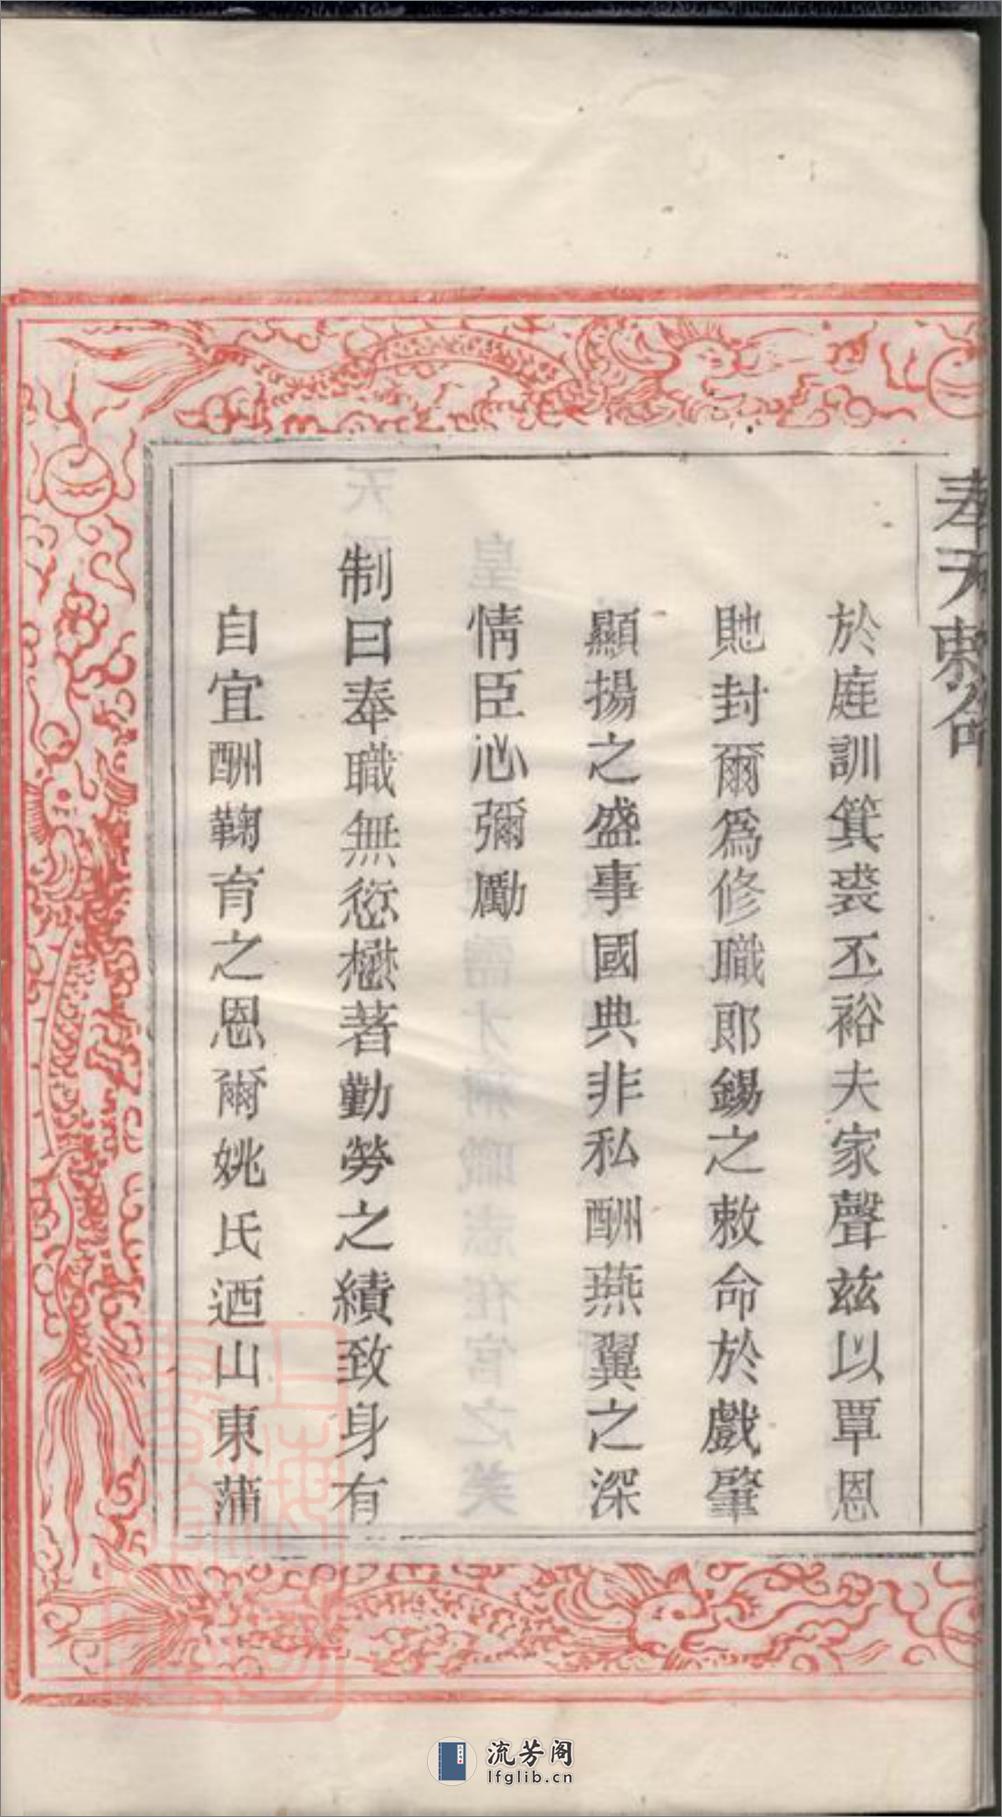 奉天敕命
於庭訓箕裘丕裕夫家聲兹以覃恩
貤封爾爲修職郎錫之敕命於戲肇
顯揚之盛事國典非私酬燕翼之深
情臣沁彌勵
制曰奉職無愆懋著勤勞之績致身有
自宜酬鞠育之恩爾姚氏迺山東蒲
流芳阁
lfglib.cn